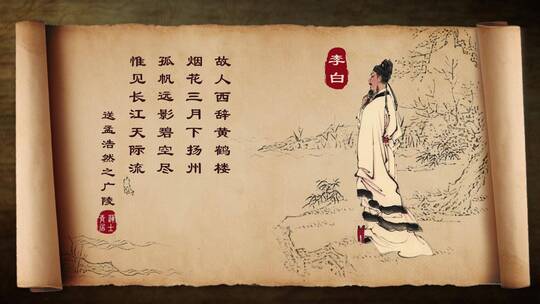 李白
故人西辞黄鹤楼
烟花三月下扬州
孤帆远影碧空尽
惟见长江天际流
送孟浩然之广陵